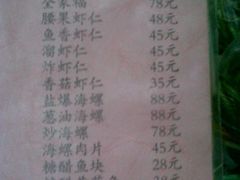 全家福 78元
腰果虾仁 48元
鱼香虾仁 45元
溜虾仁 45元
炸虾仁 45元
香菇虾仁 35元
盐爆海螺 88元
葱油海螺 88元
炒海螺 78元
海螺肉片 45元
糖醋鱼块 28元